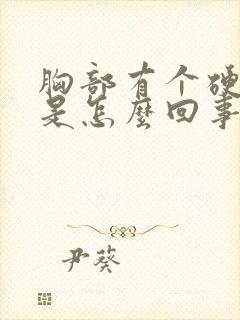 胸部有个硬
是怎麽回事
尹葵